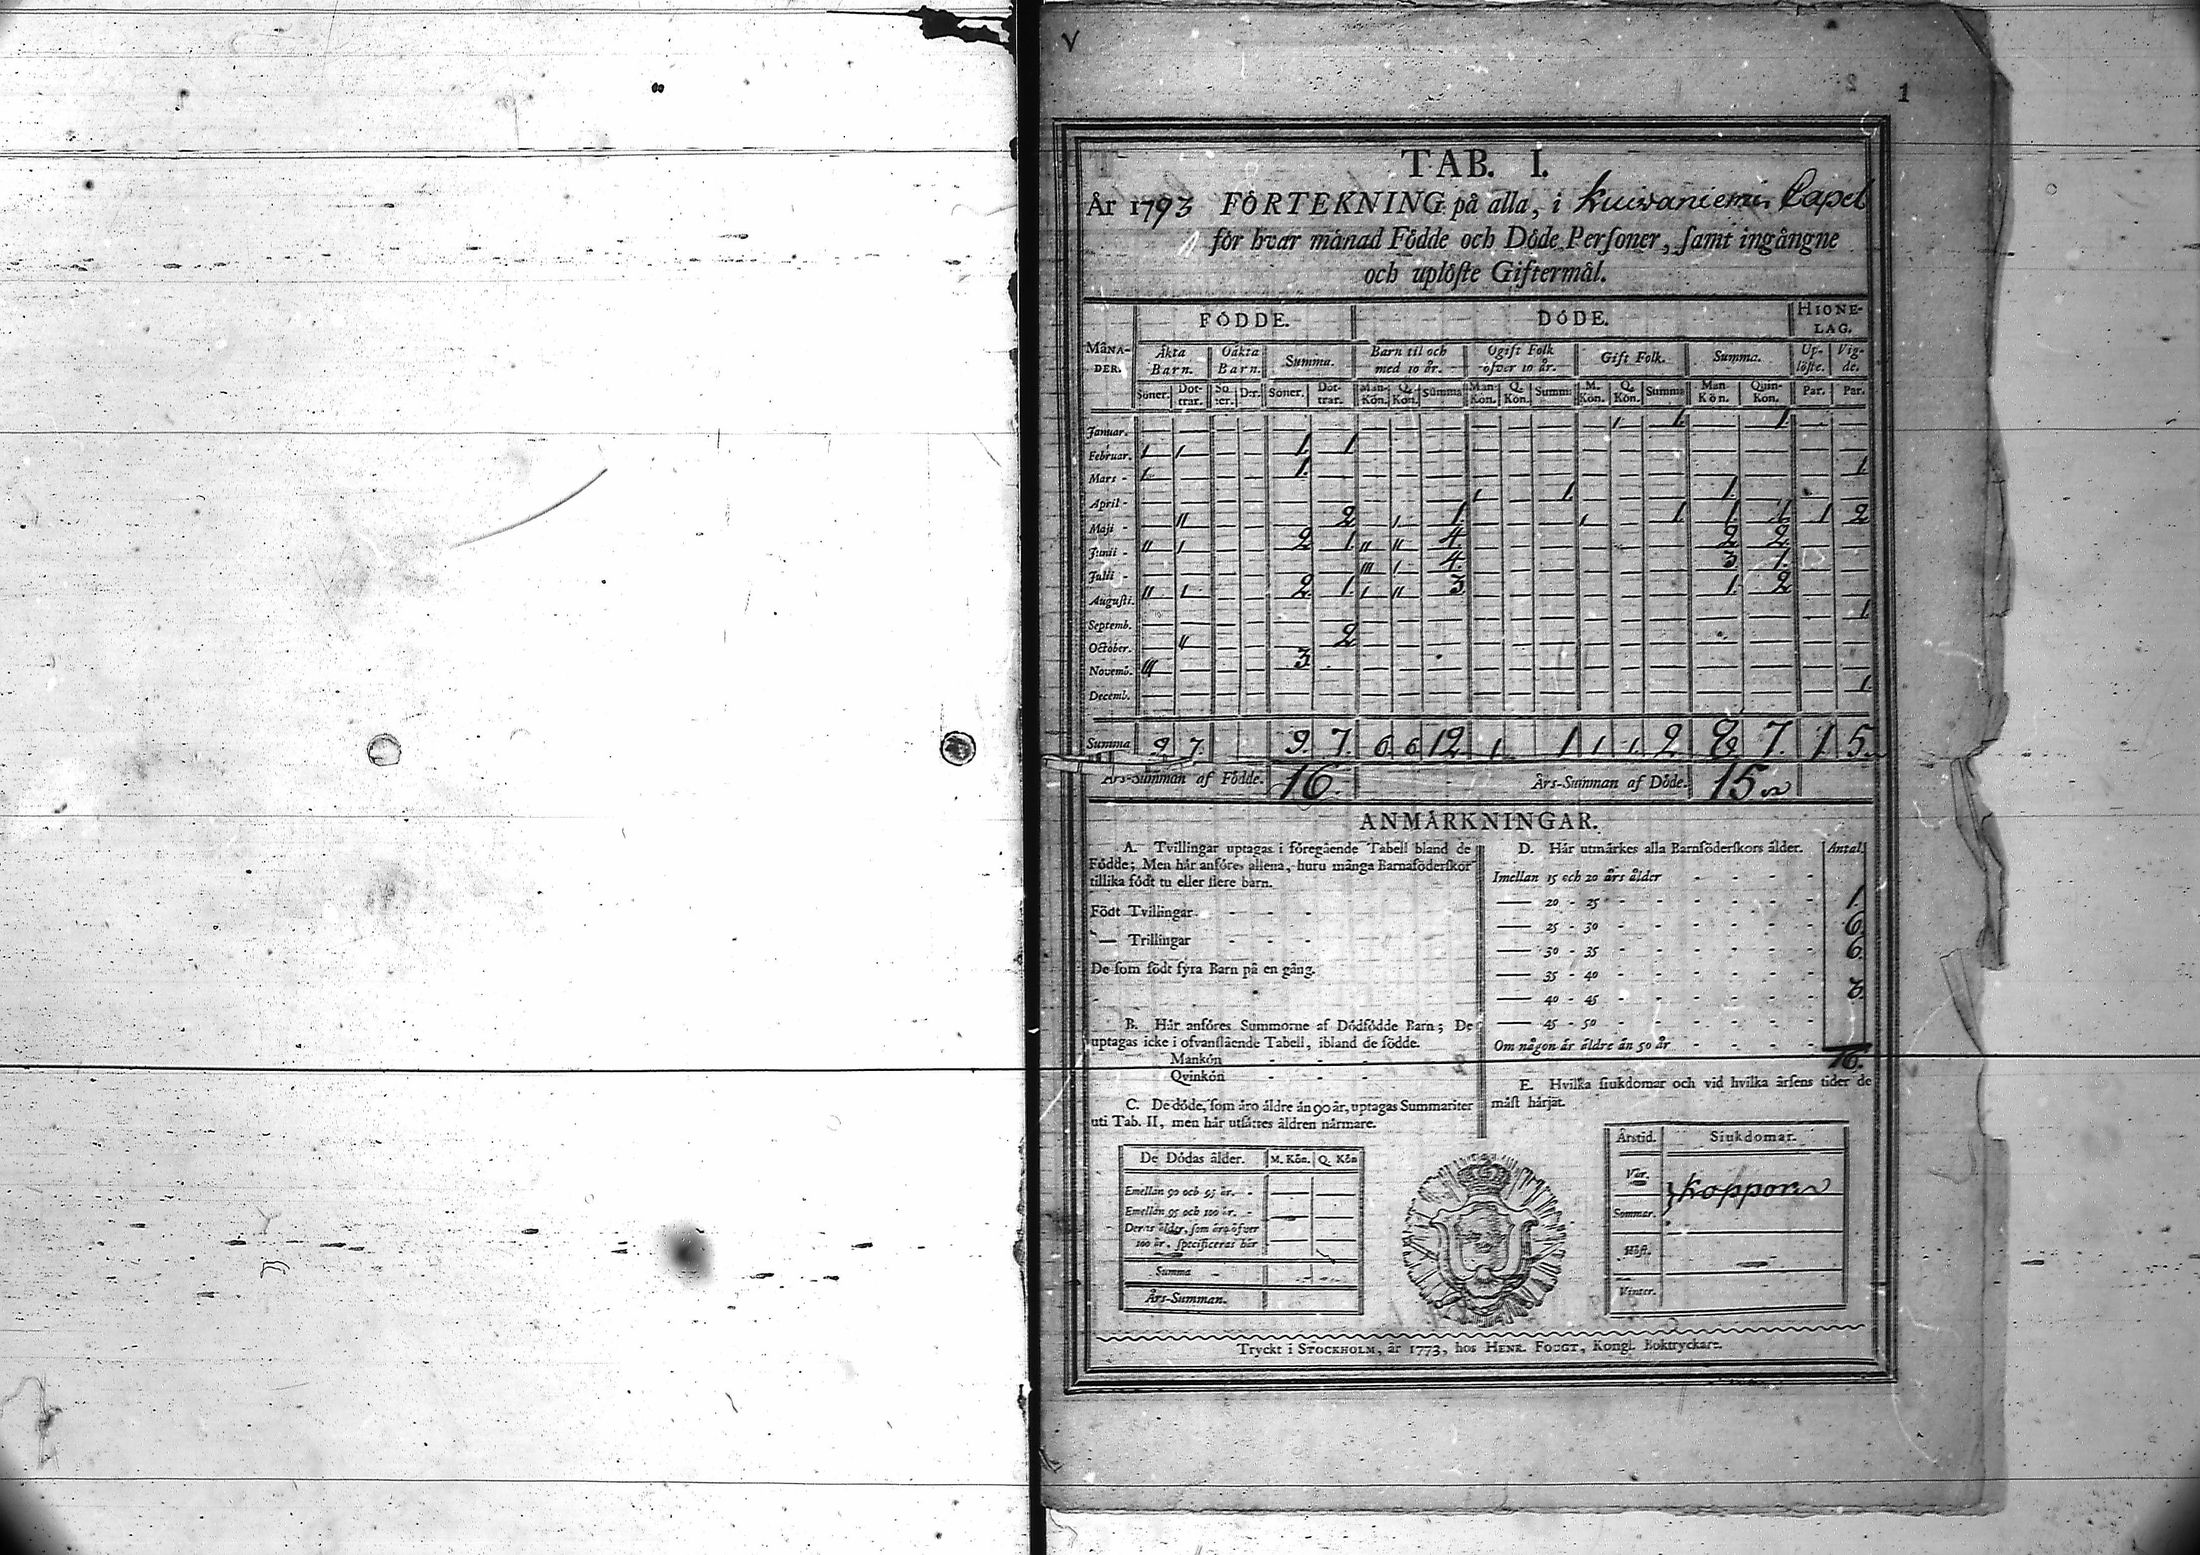 1
TAB. I.
År 1793 FÖRTEKNING på alla, i Kuivaniemi Capel
för hvar månad Födde och Döde Personer, samt ingångne
och uplöste Giftermål.
MÅNADER. FÖDDE. DÖDE. HIONELAG.
Äkta Barn. Oäkta Barn. Summa. Barn til och med 10 år. Ogift Folk öfver 10 år. Gift Folk. Summa. Uplöste. Vigde.
Söner. Dottrar. Söner. D:r. Söner. Dottrar. Mankön. Q. Kön. Summa Mankön. Q. Kön. Summ: M. Kön. Q. Kön. Summa Man Kön. Quinkön. Par. Par.
Januar. — — — — — — — — — — — — — 1 1. — 1. — —
Februar. 1 1 — — 1. 1 — — — — — — — — — — — — —
Mars - 1 — — — 1. — — — — — — — — — — — — 1.
April - — — — — — — — — — 1 — 1. — — — 1. — — —
Maji - — 11 — — — 2 — 1. 1 — — — 1 — 1 1. 1 1 2
Junii - 11 1 — — 2 1. 11 11 4. — — — — — — 2 2. — —
Julii - — — — — — — 111 1. 4. — — — — — — 3 1. — —
Augusti. 11 1 — — 2. 1. 1 11 3 — — — — — — 1. 2 — —
Septemb. — — — — — — — — — — — — — — — — — — 1.
October. — 11 — — — 2 — — — — — — — — — — — — —
Novemb. 111 — — — 3. — — — — — — — — — — — — — —
Decemb. — — — — — — — — — — — — — — — — — — 1.
Summa 9 7. 9. 7. 6. 6 12 1. 1 1 1. 2 8 7. 1 5.
Års-Summan af Födde. 16. Års-Summan af Döde. 15
ANMÄRKNINGAR.
A. Tvillingar uptagas i föregående Tabell bland de
Födde; Men här anföres allena, huru många Barnaföderskor
tillika födt tu eller flere barn.
Födt Tvillingar - - -
— Trillingar - - -
De som födt fyra Barn på en gång.
B. Här anföres Summorne af Dödfödde Barn; De
uptagas icke i ofvanstående Tabell, ibland de födde.
Mankön - - -
Qvinkön - - -
C. De döde, som äro äldre än 90 år, uptagas Summariter
uti Tab. II, men här utsättes åldren närmare.
De Dödas ålder. M. Kön. Q. Kön
Emellan 90 och 95 år. - — —
Emellan 95 och 100 år. - — —
Deras ålder, som äro öfver
100 år, specificeras här — —
Summa -
Års-Summan.
D. Här utmärkes alla Barnföderskors ålder. Antal
Imellan 15 och 20 års ålder - - - -
— 20 - 25 - - - - - - 1.
— 25 - 30 - - - - - - 6.
— 30 - 35 - - - - - - 6.
— 35 - 40 - - - - - -
— 40 - 45 - - - - - - 3.
— 45 - 50 - - - - - -
Om någon är äldre än 50 år - - - - 16.
E. Hvilka siukdomar och vid hvilka årsens tider de
mäst härjat.
Årstid. Siukdomar.
Vår.
Koppor
Sommar.
Höst. —
Vinter.
Tryckt i STOCKHOLM, år 1773, hos HENR. FOUGT, Kongl. Boktryckare.